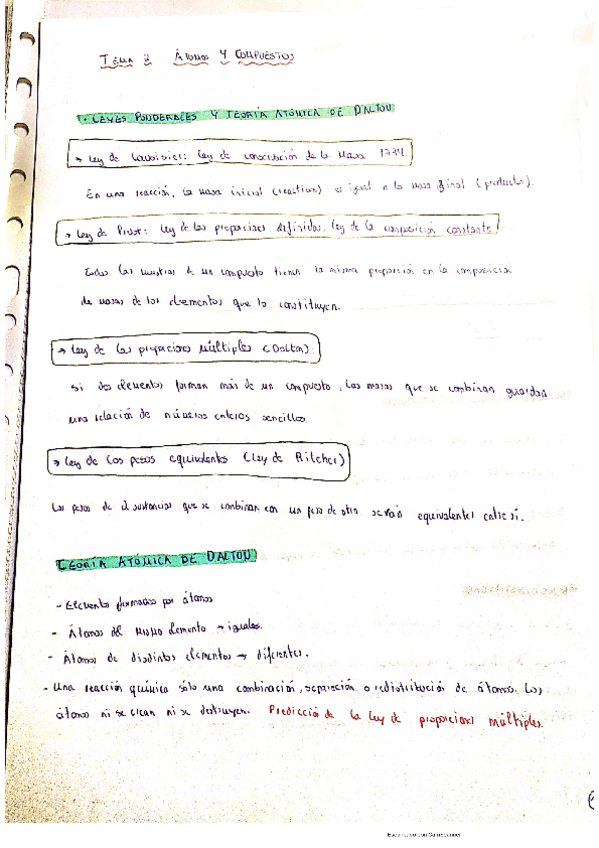 TEMA 2 ÁTOMOS Y COMPUESTOS
· LEYES PONDERALES Y TEORÍA ATÓMICA DE DALTON
→ Ley de Lavoisier: Ley de conservación de la Masa 1774.
En una reacción, la masa inicial (reactivos) es igual a la masa final (productos).
→ Ley de Proust: Ley de las proporciones definidas. Ley de la composición constante
Todas las muestras de un compuesto tienen la misma proporción en la composición
de masas de los elementos que lo constituyen.
→ Ley de las proporciones múltiples (Dalton)
Si dos elementos forman más de un compuesto, las masas que se combinan guardan
una relación de números enteros sencillos
→ Ley de los pesos equivalentes (Ley de Ritcher)
Los pesos de sustancias que se combinan con un peso de otra serán equivalentes entre sí.
TEORÍA ATÓMICA DE DALTON
- Elementos formados por átomos
- Átomos del mismo elemento → iguales.
- Átomos de distintos elementos → diferentes.
- Una reacción química sólo una combinación, separación o redistribución de átomos. Los
átomos ni se crean ni se destruyen. Predicción de la ley de proporciones múltiples.
Escaneado con CamScanner